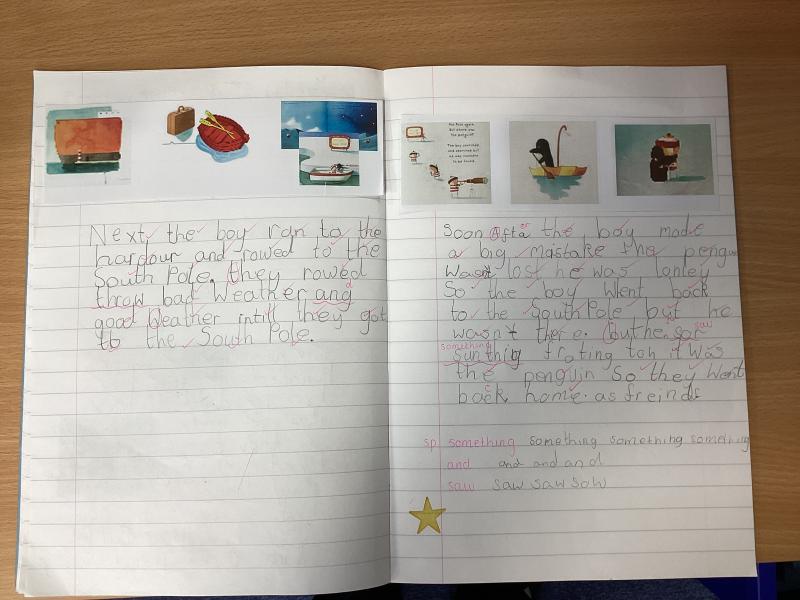 Next the boy ran to the
harbour and rowed to the
South Pole. they rowed
throw bad Weather and
good Weather intill they got
to the South Pole.
the Pole again.
But where was
the penguin?
The boy searched
and searched but
he was nowhere
to be found.
Soon Afta the boy made
a big mastake the penguin
Wasnt lost he was lonley
So the boy Went back
to the South Pole but he
wasn't there. but he sor
saw
something
sunthig
it was
the penguin So they Went
back home. as freinds
sp something something something something
and and and and
saw saw saw saw